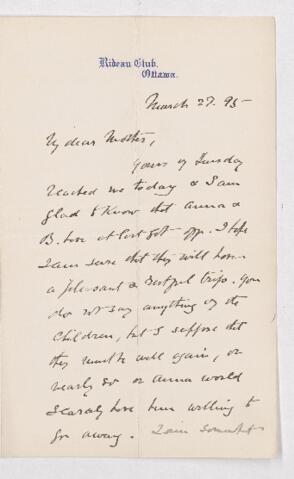 Rideau Club,
Ottawa.
March 27. 95-
My dear Mother,
Yours of Tuesday
reached me today & I am
glad to know that Anna &
B. have at last got off. I hope
I am sure that they will have
a pleasant & restful trip. You
do not say anything of the
children, but I suppose that
they must be well again, or
nearly so or Anna would
scarcely have been willing to
go away. I am somewhat